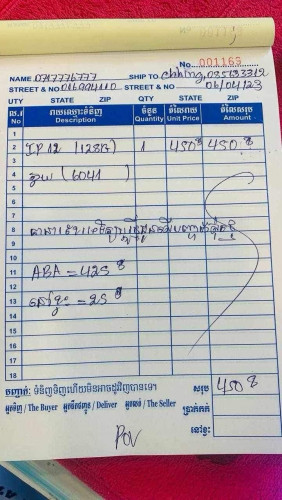 No. 001163
NAME 0717776777 SHIP TO
STREET & NO 016994110 STREET & NO 06/04/23
UTY STATE ZIP QTY STATE ZIP
ល.រ No រាយឈ្មោះទំនិញ Description ចំនួន Quantity តំលៃរាយ Unit Price តំលៃសរុប Amount
1
2 IP 12 (128G) 1 450$ 450$
3
4 (6041)
5
6
7
8
9
10
11 ABA = 425$
12
13 = 25$
14
15
16
17
18
បញ្ជាក់: ទំនិញទិញហើយមិនអាចដូរវិញបានទេ។ សរុប 450$
អ្នកទិញ / The Buyer អ្នកដឹកជញ្ជូន / Deliver អ្នកលក់ / The Seller ប្រាក់កក់
នៅខ្វះ
Pov